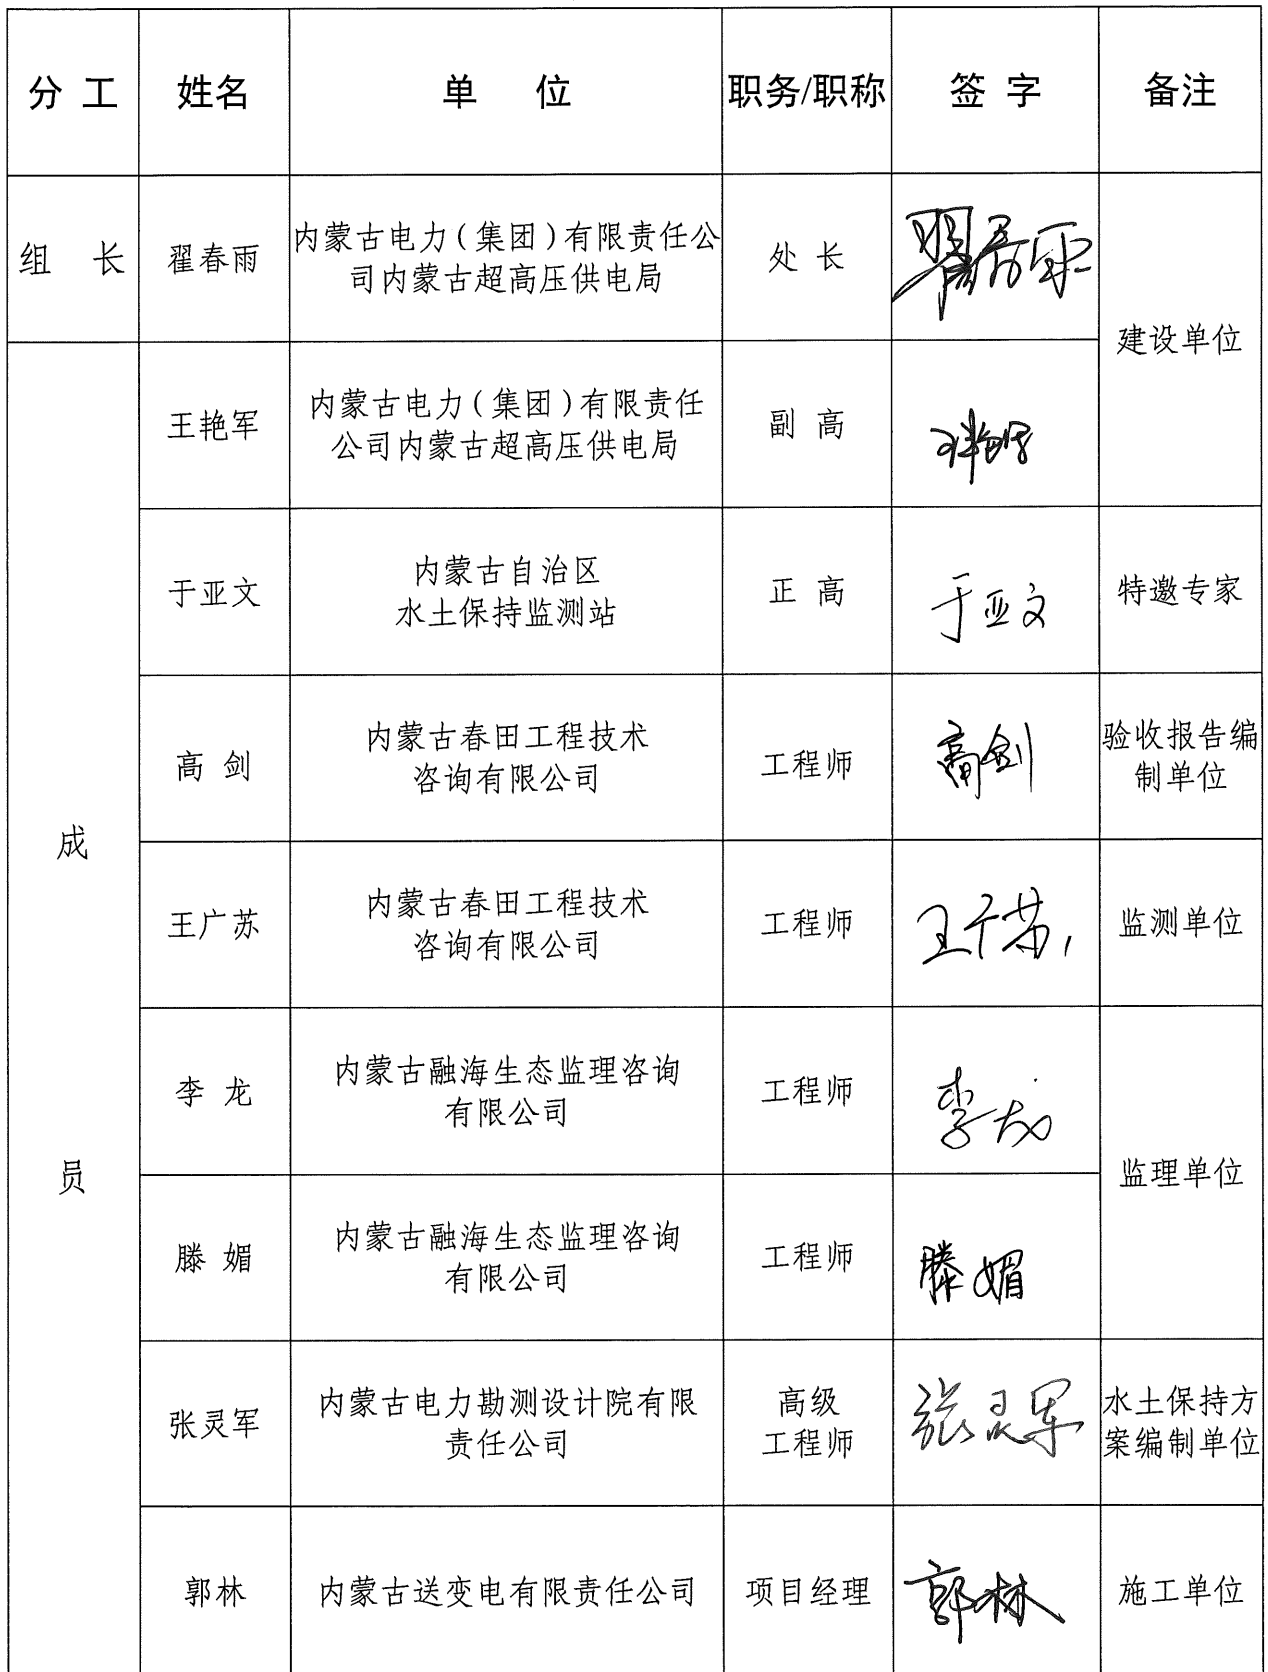 分 工 姓名 单 位 职务/职称 签 字 备注
组 长 翟春雨 内蒙古电力(集团)有限责任公
司内蒙古超高压供电局 处 长 翟春雨
建设单位
王艳军 内蒙古电力(集团)有限责任
公司内蒙古超高压供电局 副 高
于亚文 内蒙古自治区
水土保持监测站 正 高 于亚文 特邀专家
高 剑 内蒙古春田工程技术
咨询有限公司 工程师 高剑 验收报告编
制单位
成
王广苏 内蒙古春田工程技术
咨询有限公司 工程师 王广苏 监测单位
李 龙 内蒙古融海生态监理咨询
有限公司 工程师 李龙
员
监理单位
滕 媚 内蒙古融海生态监理咨询
有限公司 工程师 滕媚
张灵军 内蒙古电力勘测设计院有限
责任公司 高级
工程师 张灵军 水土保持方
案编制单位
郭林 内蒙古送变电有限责任公司 项目经理 郭林 施工单位